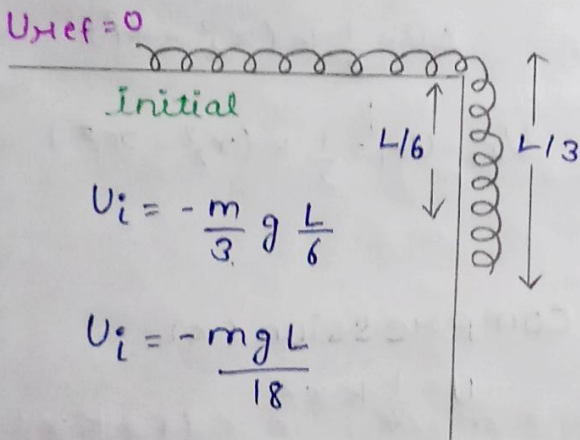 Uref = 0
initial
L/6
L/3
Ui = - m/3 g L/6
Ui = - mgL/18